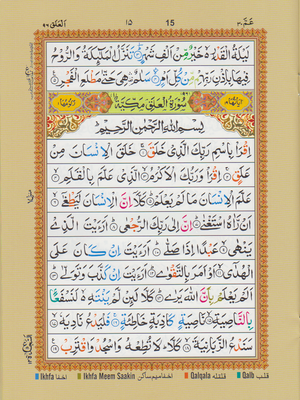 عَمَّ ٣٠ 15 ١٥ اَلْعَلَق ٩٦
لَيْلَةُ الْقَدْرِ ۙ خَيْرٌ مِّنْ اَلْفِ شَهْرٍ ؕ تَنَزَّلُ الْمَلٰٓئِكَةُ وَالرُّوْحُ
فِيْهَا بِاِذْنِ رَبِّهِمْ ۚ مِنْ كُلِّ اَمْرٍ ۙ سَلٰمٌ ۛ هِيَ حَتّٰى مَطْلَعِ الْفَجْرِ
سُوْرَةُ الْعَلَقِ مَكِّيَّةٌ
بِسْمِ اللّٰهِ الرَّحْمٰنِ الرَّحِيْمِ
اِقْرَاْ بِاسْمِ رَبِّكَ الَّذِيْ خَلَقَ ۚ خَلَقَ الْاِنْسَانَ مِنْ
عَلَقٍ ۚ اِقْرَاْ وَرَبُّكَ الْاَكْرَمُ ۙ الَّذِيْ عَلَّمَ بِالْقَلَمِ ۙ
عَلَّمَ الْاِنْسَانَ مَا لَمْ يَعْلَمْ ؕ كَلَّاۤ اِنَّ الْاِنْسَانَ لَيَطْغٰٓى ۙ
اَنْ رَّاٰهُ اسْتَغْنٰى ؕ اِنَّ اِلٰى رَبِّكَ الرُّجْعٰى ؕ اَرَءَيْتَ الَّذِيْ
يَنْهٰى ۙ عَبْدًا اِذَا صَلّٰى ؕ اَرَءَيْتَ اِنْ كَانَ عَلَى
الْهُدٰٓى ۙ اَوْ اَمَرَ بِالتَّقْوٰى ؕ اَرَءَيْتَ اِنْ كَذَّبَ وَتَوَلّٰى ؕ
اَلَمْ يَعْلَمْ بِاَنَّ اللّٰهَ يَرٰى ؕ كَلَّا لَئِنْ لَّمْ يَنْتَهِ ۙ لَنَسْفَعًۢا
بِالنَّاصِيَةِ ۙ نَاصِيَةٍ كَاذِبَةٍ خَاطِئَةٍ ۚ فَلْيَدْعُ نَادِيَهٗ ۙ
سَنَدْعُ الزَّبَانِيَةَ ۙ كَلَّا ؕ لَا تُطِعْهُ وَاسْجُدْ وَاقْتَرِبْ
Ikhfa اخفا Ikhfa Meem Saakin اخفا میم ساکن Qalqala قلقله Qalb قلب